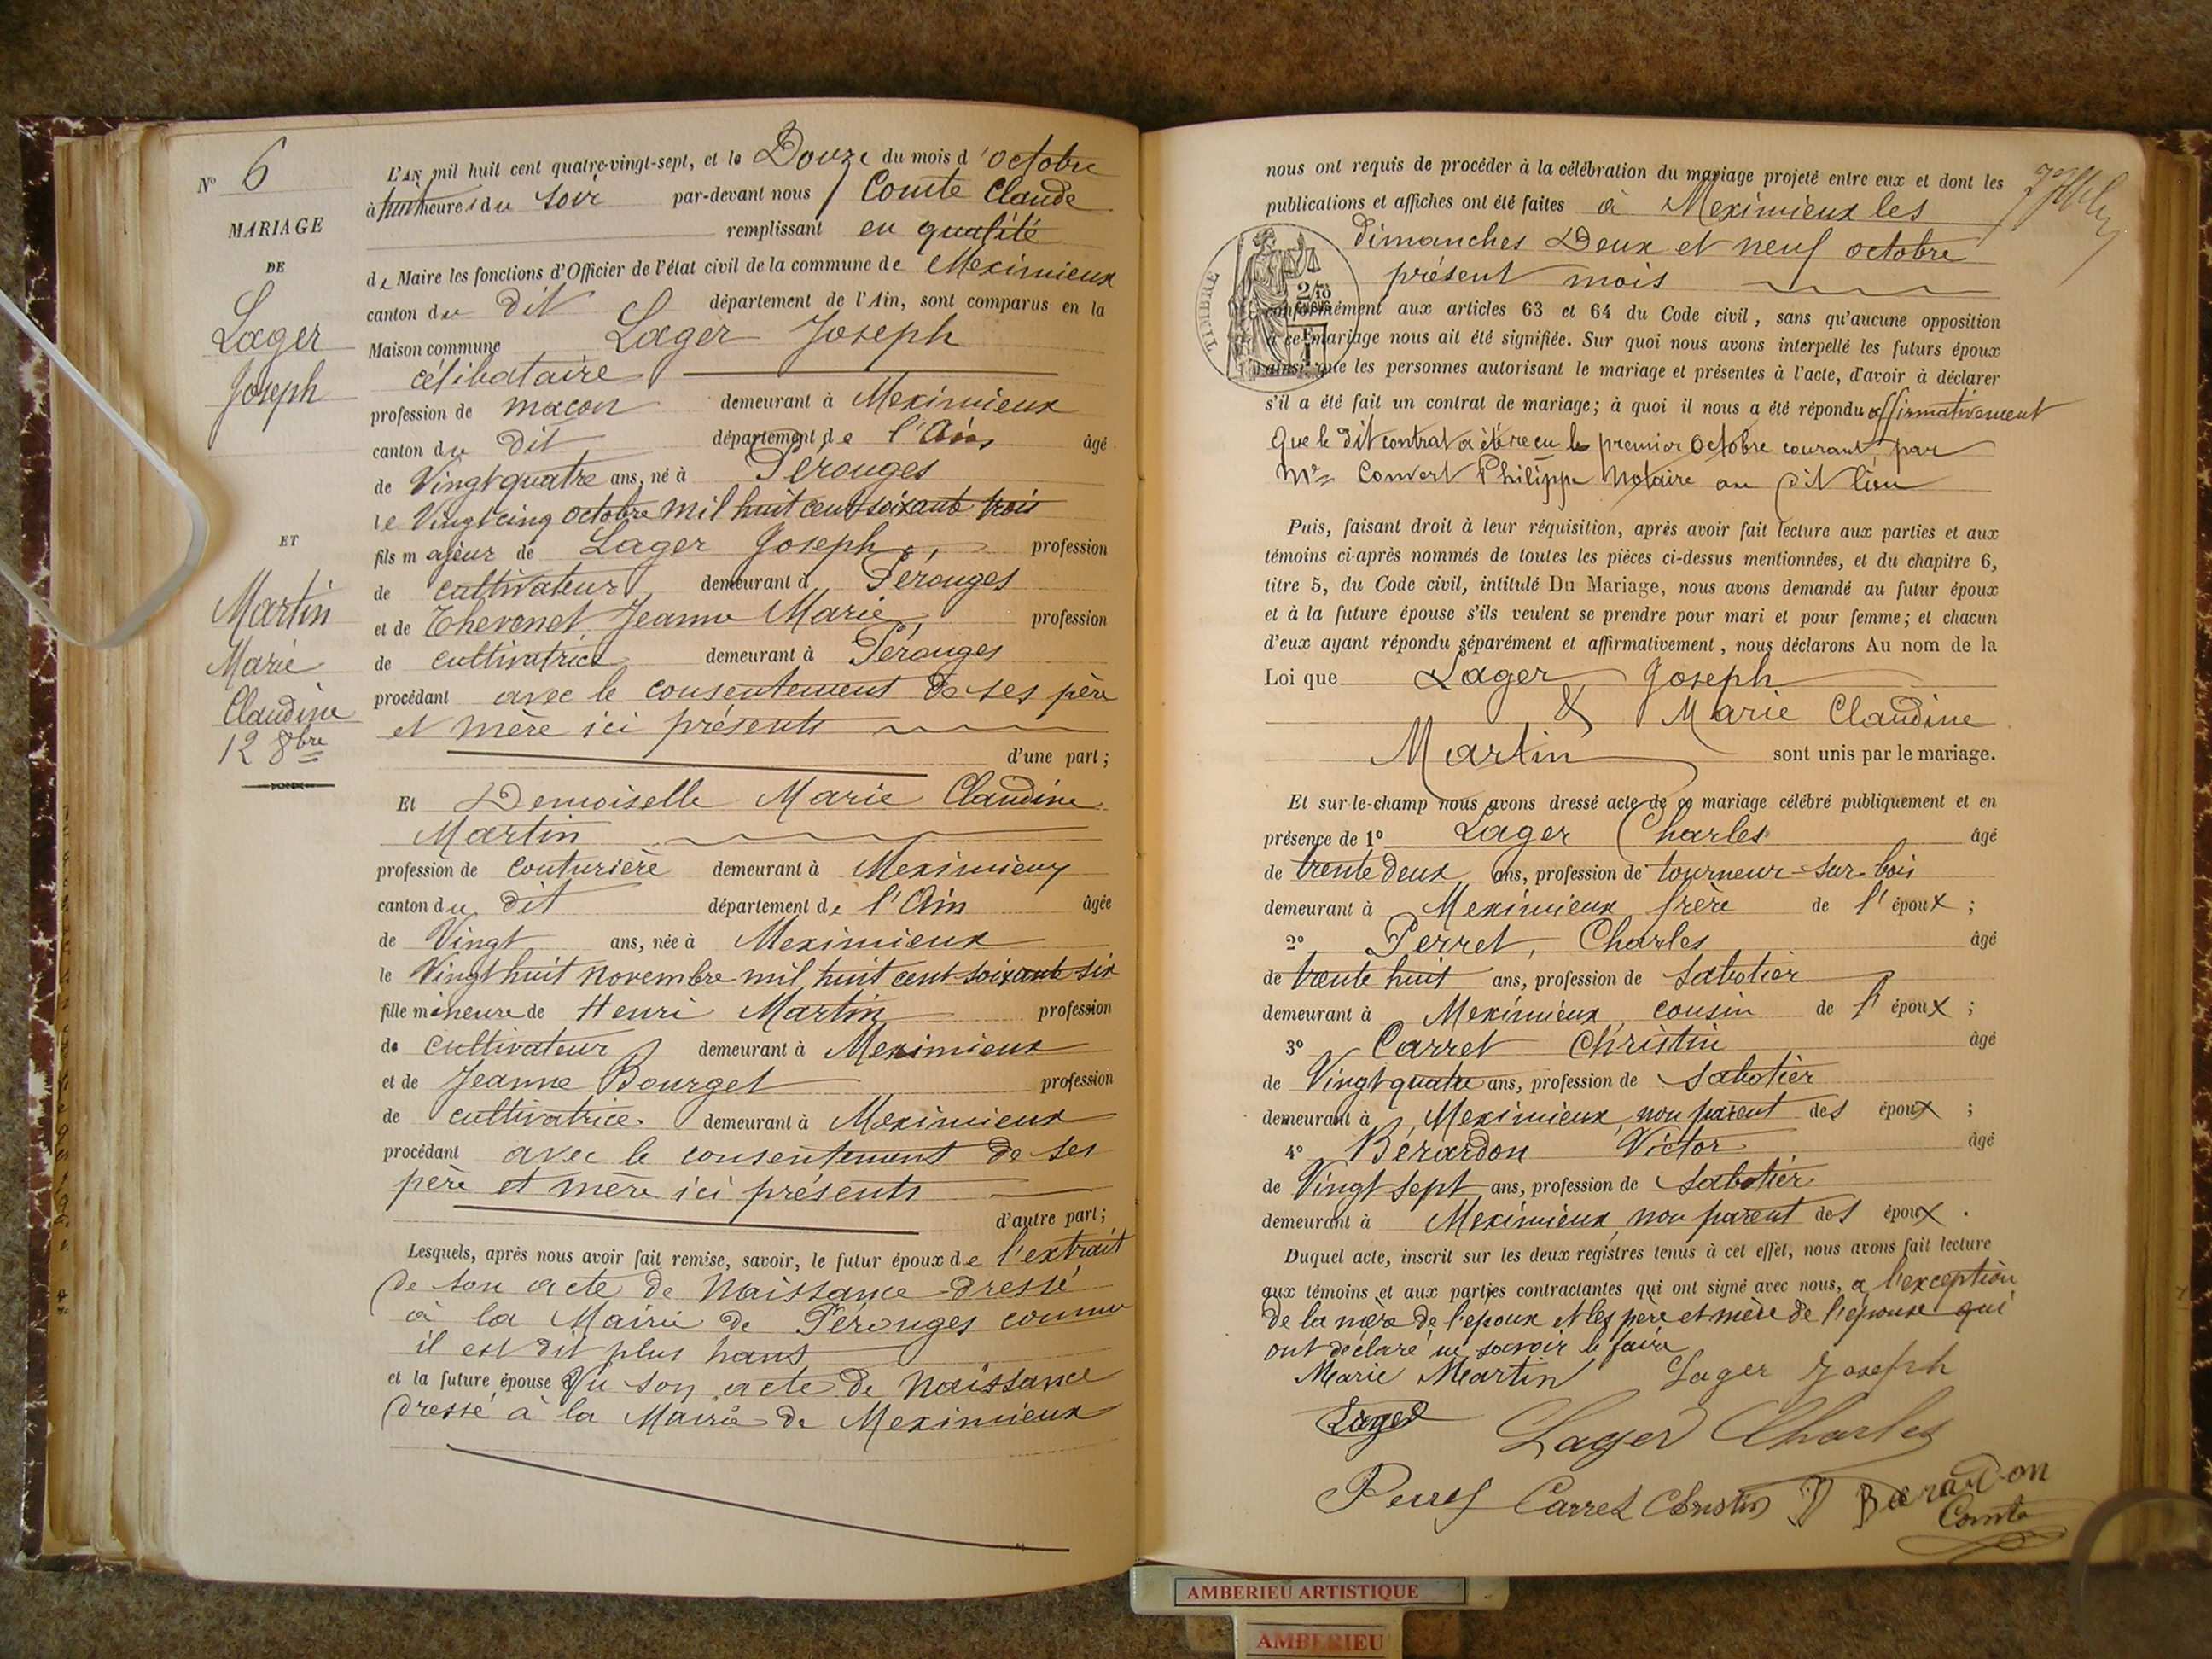 N° 6
MARIAGE
DE
Lager
Joseph
ET
Martin
Marie
Claudine
12 8bre
L'AN mil huit cent quatre-vingt-sept, et le Douze du mois d'octobre
à huit heures du soir par-devant nous Comte Claude
remplissant en qualité
de Maire les fonctions d'Officier de l'état civil de la commune de Meximieux
canton du dit département de l'Ain, sont comparus en la
Maison commune Lager Joseph
célibataire
profession de maçon demeurant à Meximieux
canton du dit département de l'Ain âgé
de Vingt quatre ans, né à Pérouges
le Vingt cinq octobre mil huit cent soixante trois
fils majeur de Lager Joseph, profession
de cultivateur demeurant à Pérouges
et de Thevenet Jeanne Marie, profession
de cultivatrice demeurant à Pérouges
procédant avec le consentement de ses père
et mère ici présents
d'une part;
Et Demoiselle Marie Claudine
Martin
profession de couturière demeurant à Meximieux
canton du dit département de l'Ain âgée
de Vingt ans, née à Meximieux
le Vingt huit novembre mil huit cent soixante six
fille mineure de Henri Martin profession
de cultivateur demeurant à Meximieux
et de Jeanne Bourget profession
de cultivatrice demeurant à Meximieux
procédant avec le consentement de ses
père et mère ici présents
d'autre part;
Lesquels, après nous avoir fait remise, savoir, le futur époux de l'extrait
de son acte de Naissance dressé
à la Mairie de Pérouges comme
il est dit plus haut
et la future épouse Vu son acte de Naissance
dressé à la Mairie de Meximieux
nous ont requis de procéder à la célébration du mariage projeté entre eux et dont les
publications et affiches ont été faites à Meximieux les
dimanches Deux et neuf octobre
présent mois
TIMBRE
2/10
conformément aux articles 63 et 64 du Code civil, sans qu'aucune opposition
à ce mariage nous ait été signifiée. Sur quoi nous avons interpellé les futurs époux
ainsi que les personnes autorisant le mariage et présentes à l'acte, d'avoir à déclarer
s'il a été fait un contrat de mariage; à quoi il nous a été répondu affirmativement
que le dit contrat a été reçu le premier octobre courant par
Me Convert Philippe Notaire au dit lieu
Puis, faisant droit à leur réquisition, après avoir fait lecture aux parties et aux
témoins ci-après nommés de toutes les pièces ci-dessus mentionnées, et du chapitre 6,
titre 5, du Code civil, intitulé Du Mariage, nous avons demandé au futur époux
et à la future épouse s'ils veulent se prendre pour mari et pour femme; et chacun
d'eux ayant répondu séparément et affirmativement, nous déclarons Au nom de la
Loi que Lager Joseph
& Marie Claudine
Martin sont unis par le mariage.
Et sur-le-champ nous avons dressé acte de ce mariage célébré publiquement et en
présence de 1° Lager Charles âgé
de trente deux ans, profession de tourneur sur bois
demeurant à Meximieux frère de l'époux;
2° Perret, Charles âgé
de trente huit ans, profession de sabotier
demeurant à Meximieux, cousin de l'époux;
3° Carret Christin âgé
de Vingt quatre ans, profession de sabotier
demeurant à Meximieux, non parent des époux;
4° Bérardon Victor âgé
de Vingt sept ans, profession de sabotier
demeurant à Meximieux, non parent des époux.
Duquel acte, inscrit sur les deux registres tenus à cet effet, nous avons fait lecture
aux témoins et aux parties contractantes qui ont signé avec nous, à l'exception
de la mère de l'époux et les père et mère de l'épouse qui
ont déclaré ne savoir le faire
Marie Martin Lager Joseph
Lager Lager Charles
Perret Carret Christin Berardon
Comte
AMBERIEU ARTISTIQUE
AMBERIEU